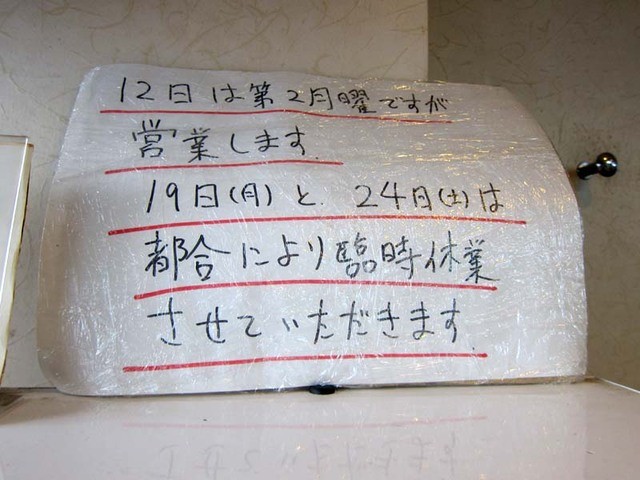 12日は第2月曜ですが
営業します.
19日(月)と、24日(土)は
都合により臨時休業
させていただきます.